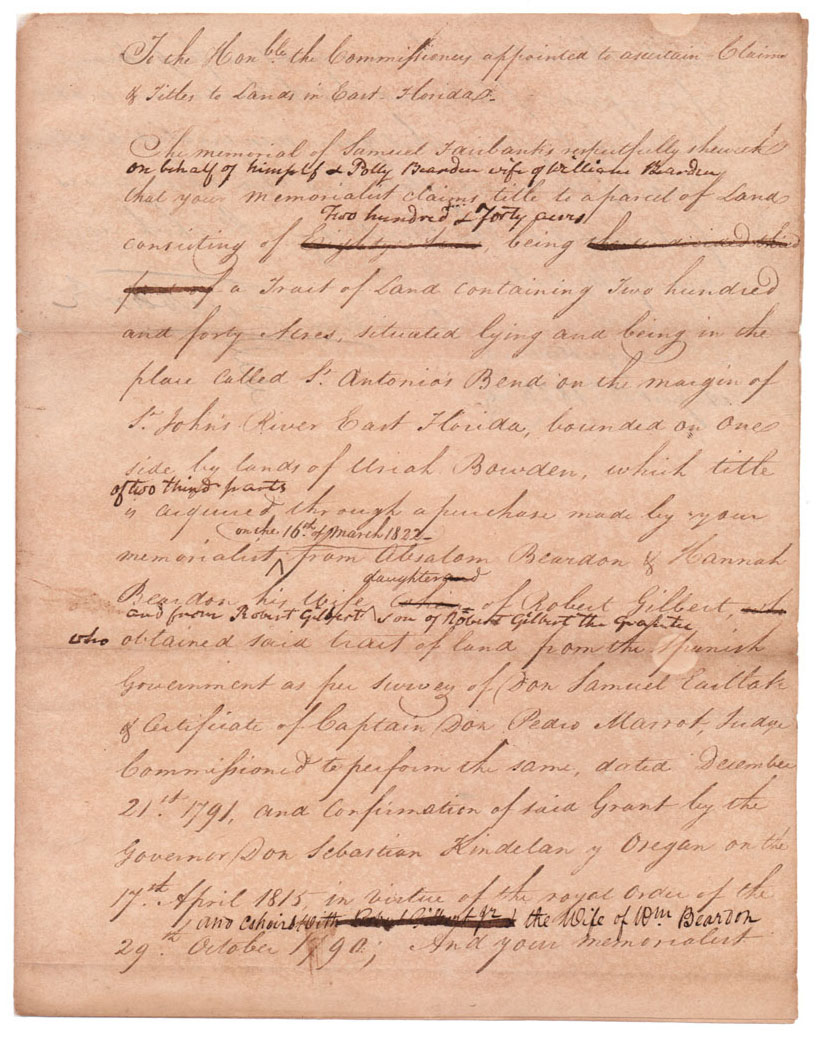 To the Hon.ble the Commissioners appointed to ascertain Claims
& Titles to Lands in East Florida.
The memorial of Samuel Fairbanks respectfully sheweth
on behalf of himself & Polly Bearden wife of William Bearden
that your memorialist claims title to a parcel of Land
Two hundred & Forty acres
consisting of Eighty Acres, being the undivided third
part of a Tract of Land containing Two hundred
and forty Acres, situated lying and being in the
place called St. Antonio's Bend on the margin of
St. John's River East Florida, bounded on one
side by lands of Uriah Bowden, which title
of two third parts
is acquired through a purchase made by your
on the 16th. of March 1822
memorialist, from Absalom Beardon & Hannah
daughter and
Beardon his wife of Robert Gilbert,
and from Robert Gilbert son of Robert Gilbert the Grantee
who obtained said tract of land from the Spanish
Government as per survey of Don Samuel Eastlak
& Certificate of Captain Don Pedro Marrot, Judge
Commissioned to perform the same, dated December
21st. 1791, and Confirmation of said Grant by the
Governor Don Sebastian Kindelan y Oregan on the
17th. April 1815, in virtue of the royal Order of the
and coheirs with the Wife of Wm Beardon
29th. October 1790; And your memorialist